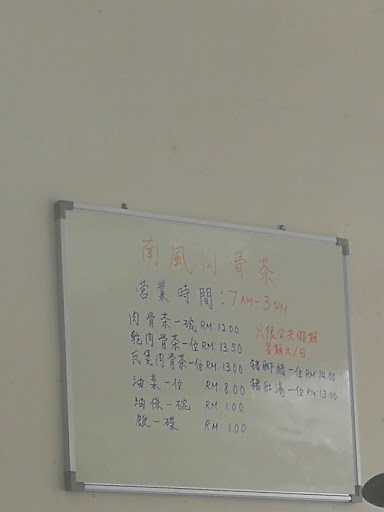 南風肉骨茶
營業時間:7AM-3PM
肉骨茶一碗 RM 12.00
乾肉骨茶一位 RM 13.50
瓦煲肉骨茶一位 RM 13.00
油菜一位 RM: 8.00
油條一碗 RM 1.00
飯一碟 RM 1.00
只限公共假期
星期六/日
豬腳醋一位 RM: 14.00
豬肚湯一位 RM: 13.00